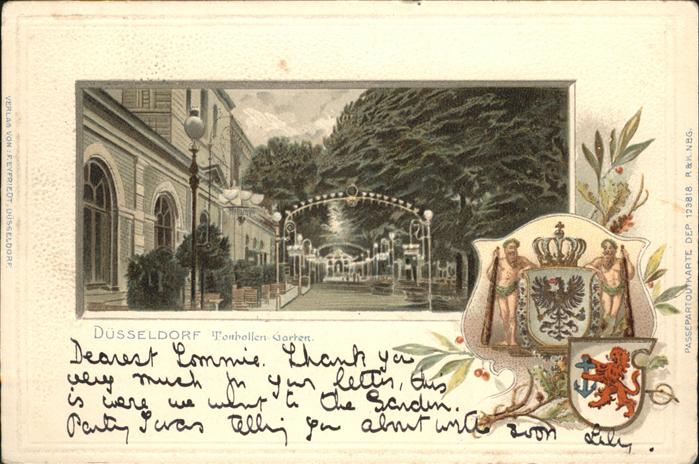 VERLAG VON: F.EYFRIEDT, DÜSSELDORF
DÜSSELDORF Tonhallen-Garten.
Dearest Tommie. Thank you
very much for your letter, this
is were we went to the Garden.
Party I was telling you about write soon Lily.
PASSEPARTOUTKARTE DEP. 123818. R.&K.NBG.